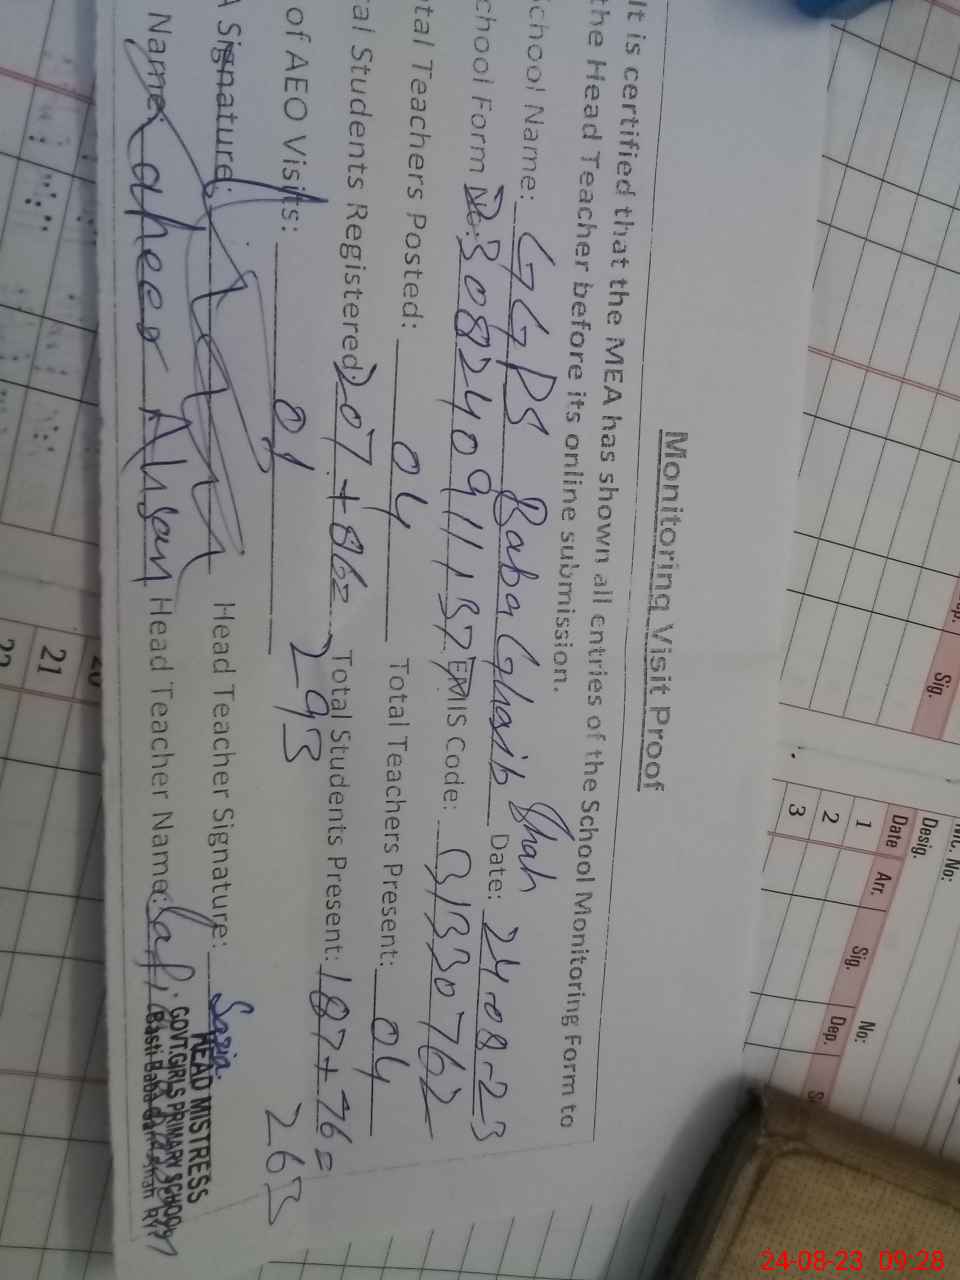 Monitoring Visit Proof
It is certified that the MEA has shown all entries of the School Monitoring Form to
the Head Teacher before its online submission.
School Name: GGPS Baba Gharib Shah Date: 24-08-23
School Form No: 30824091137 EMIS Code: 31330762
Total Teachers Posted: 04 Total Teachers Present: 04
Total Students Registered: 207+86= 293 Total Students Present: 187+76= 263
of AEO Visits: 01
A Signature: Head Teacher Signature: Safia
Name: Ahsan Head Teacher Name: Safia
HEAD MISTRESS
GOVT.GIRLS PRIMARY SCHOOL
Basti Baba
Sig.
No:
Desig.
Date Arr. Sig. Dep.
1
2
3
No:
20
21
22
24-08-23 09:28